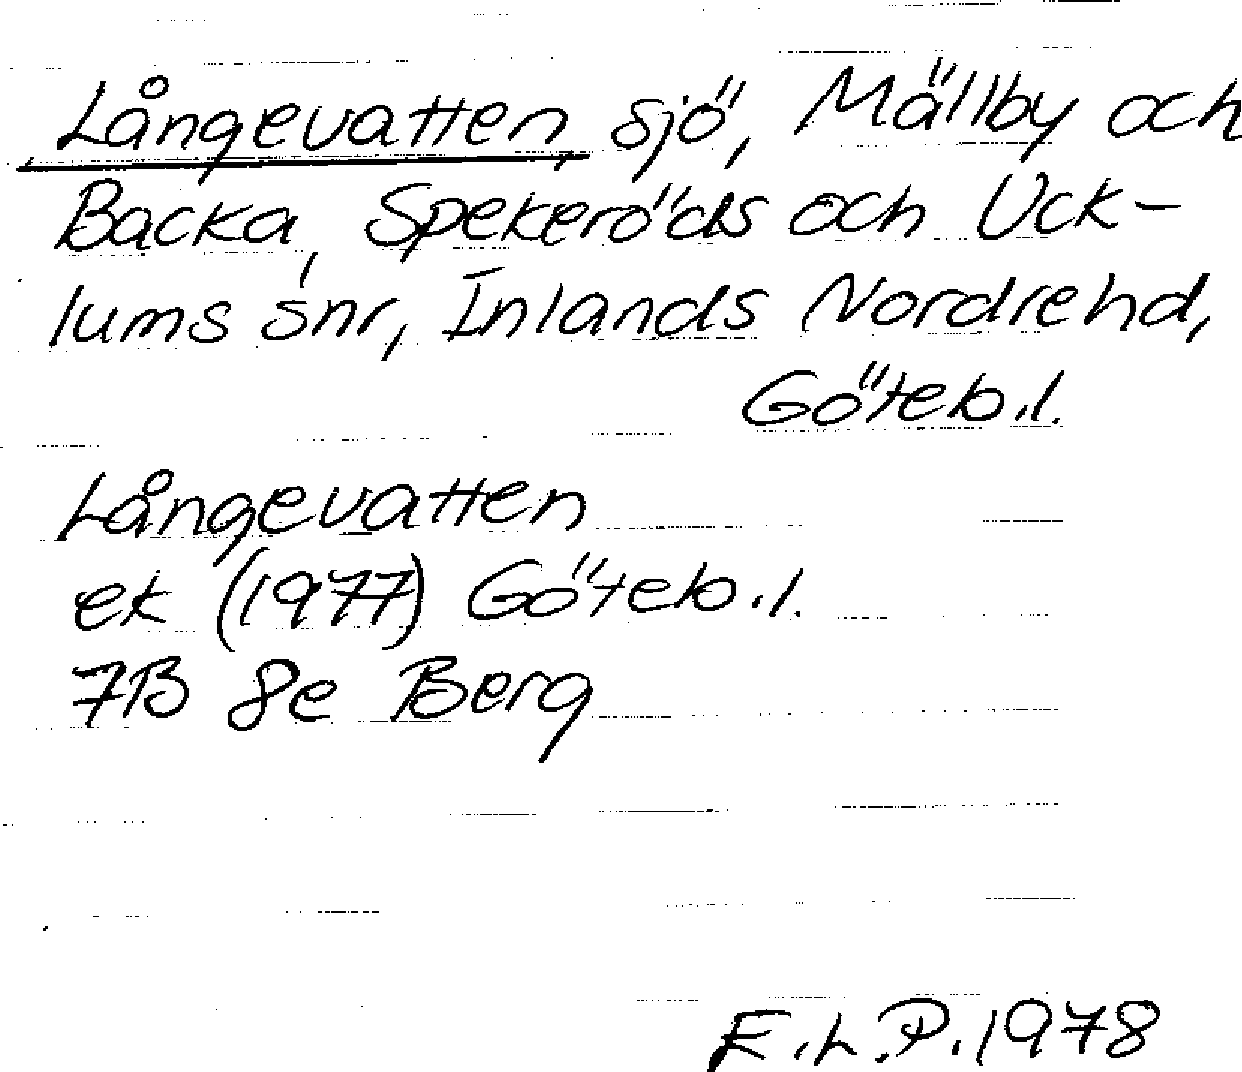 Långevatten, sjö, Mällby och
Backa, Spekeröds och Uck-
lums snr, Inlands Nordrehd,
Göteb.l.
Långevatten
ek (1977) Göteb.l.
7B 8e Berg
E.L.P. 1978